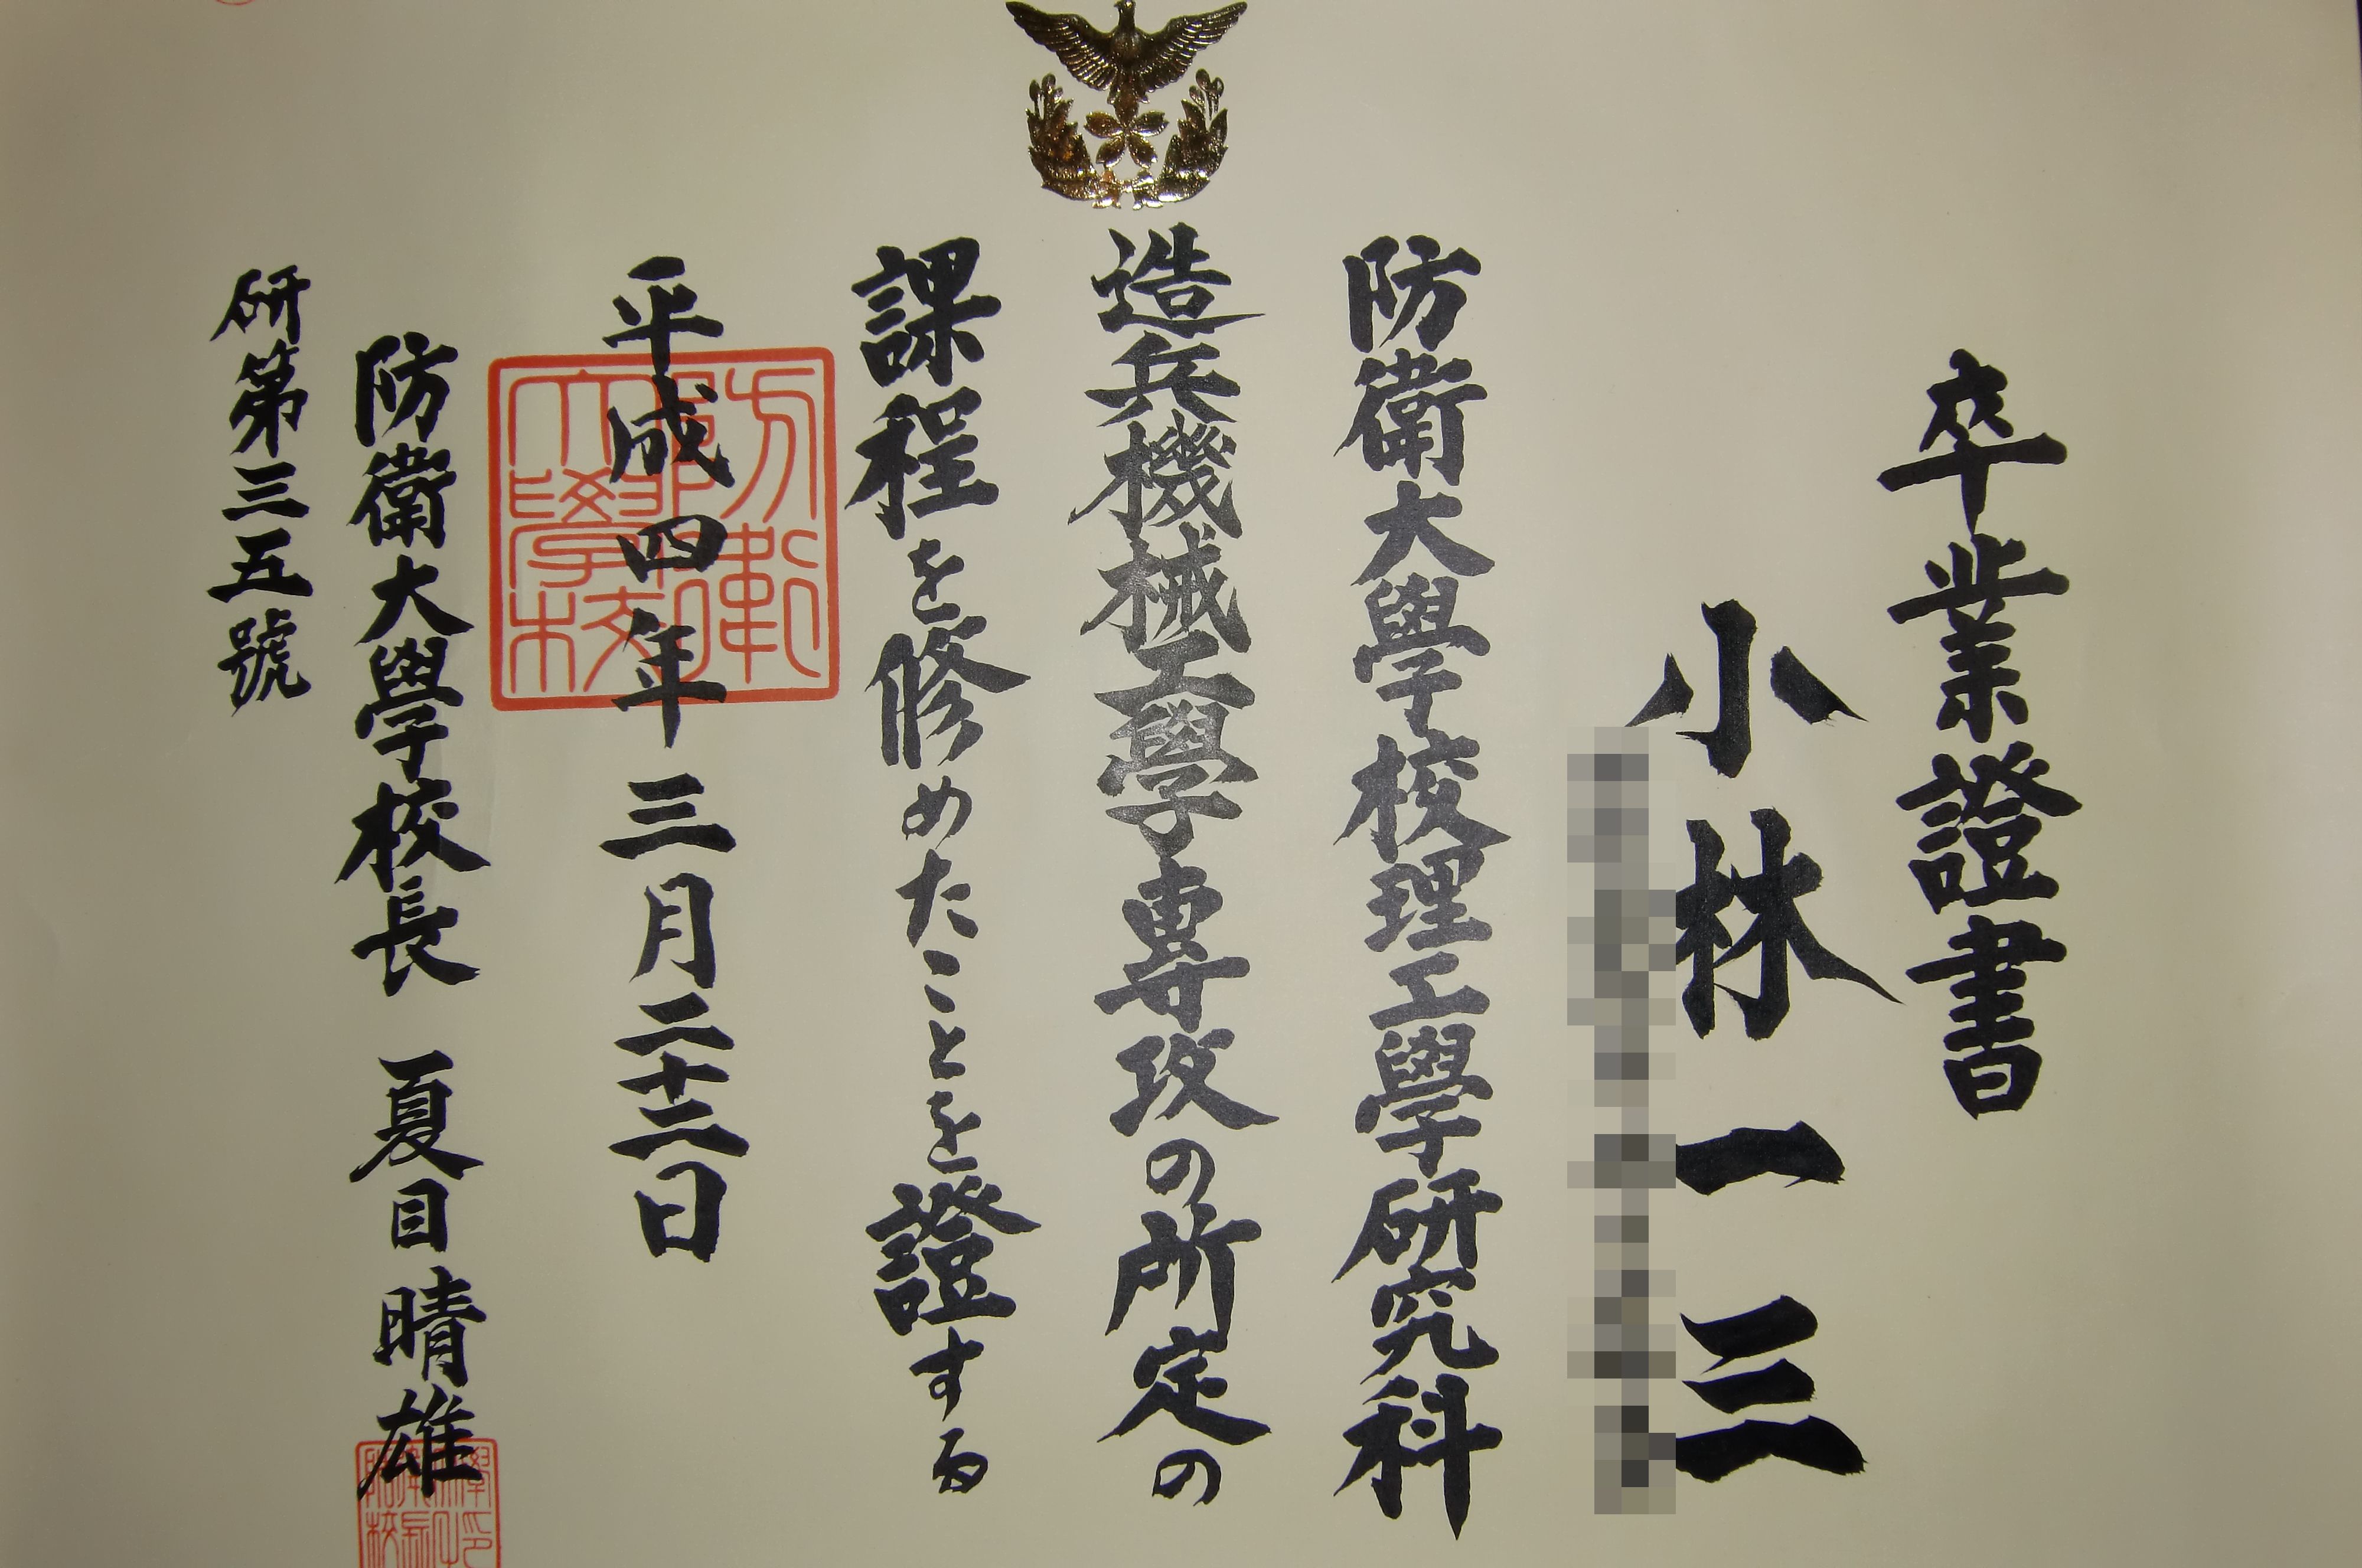 卒業證書
小林一三
防衛大學校理工學研究科
造兵機械工學専攻の所定の
課程を修めたことを證する
平成四年三月二十二日
防衛大學校長 夏目晴雄
研第三五號
防衛大學校